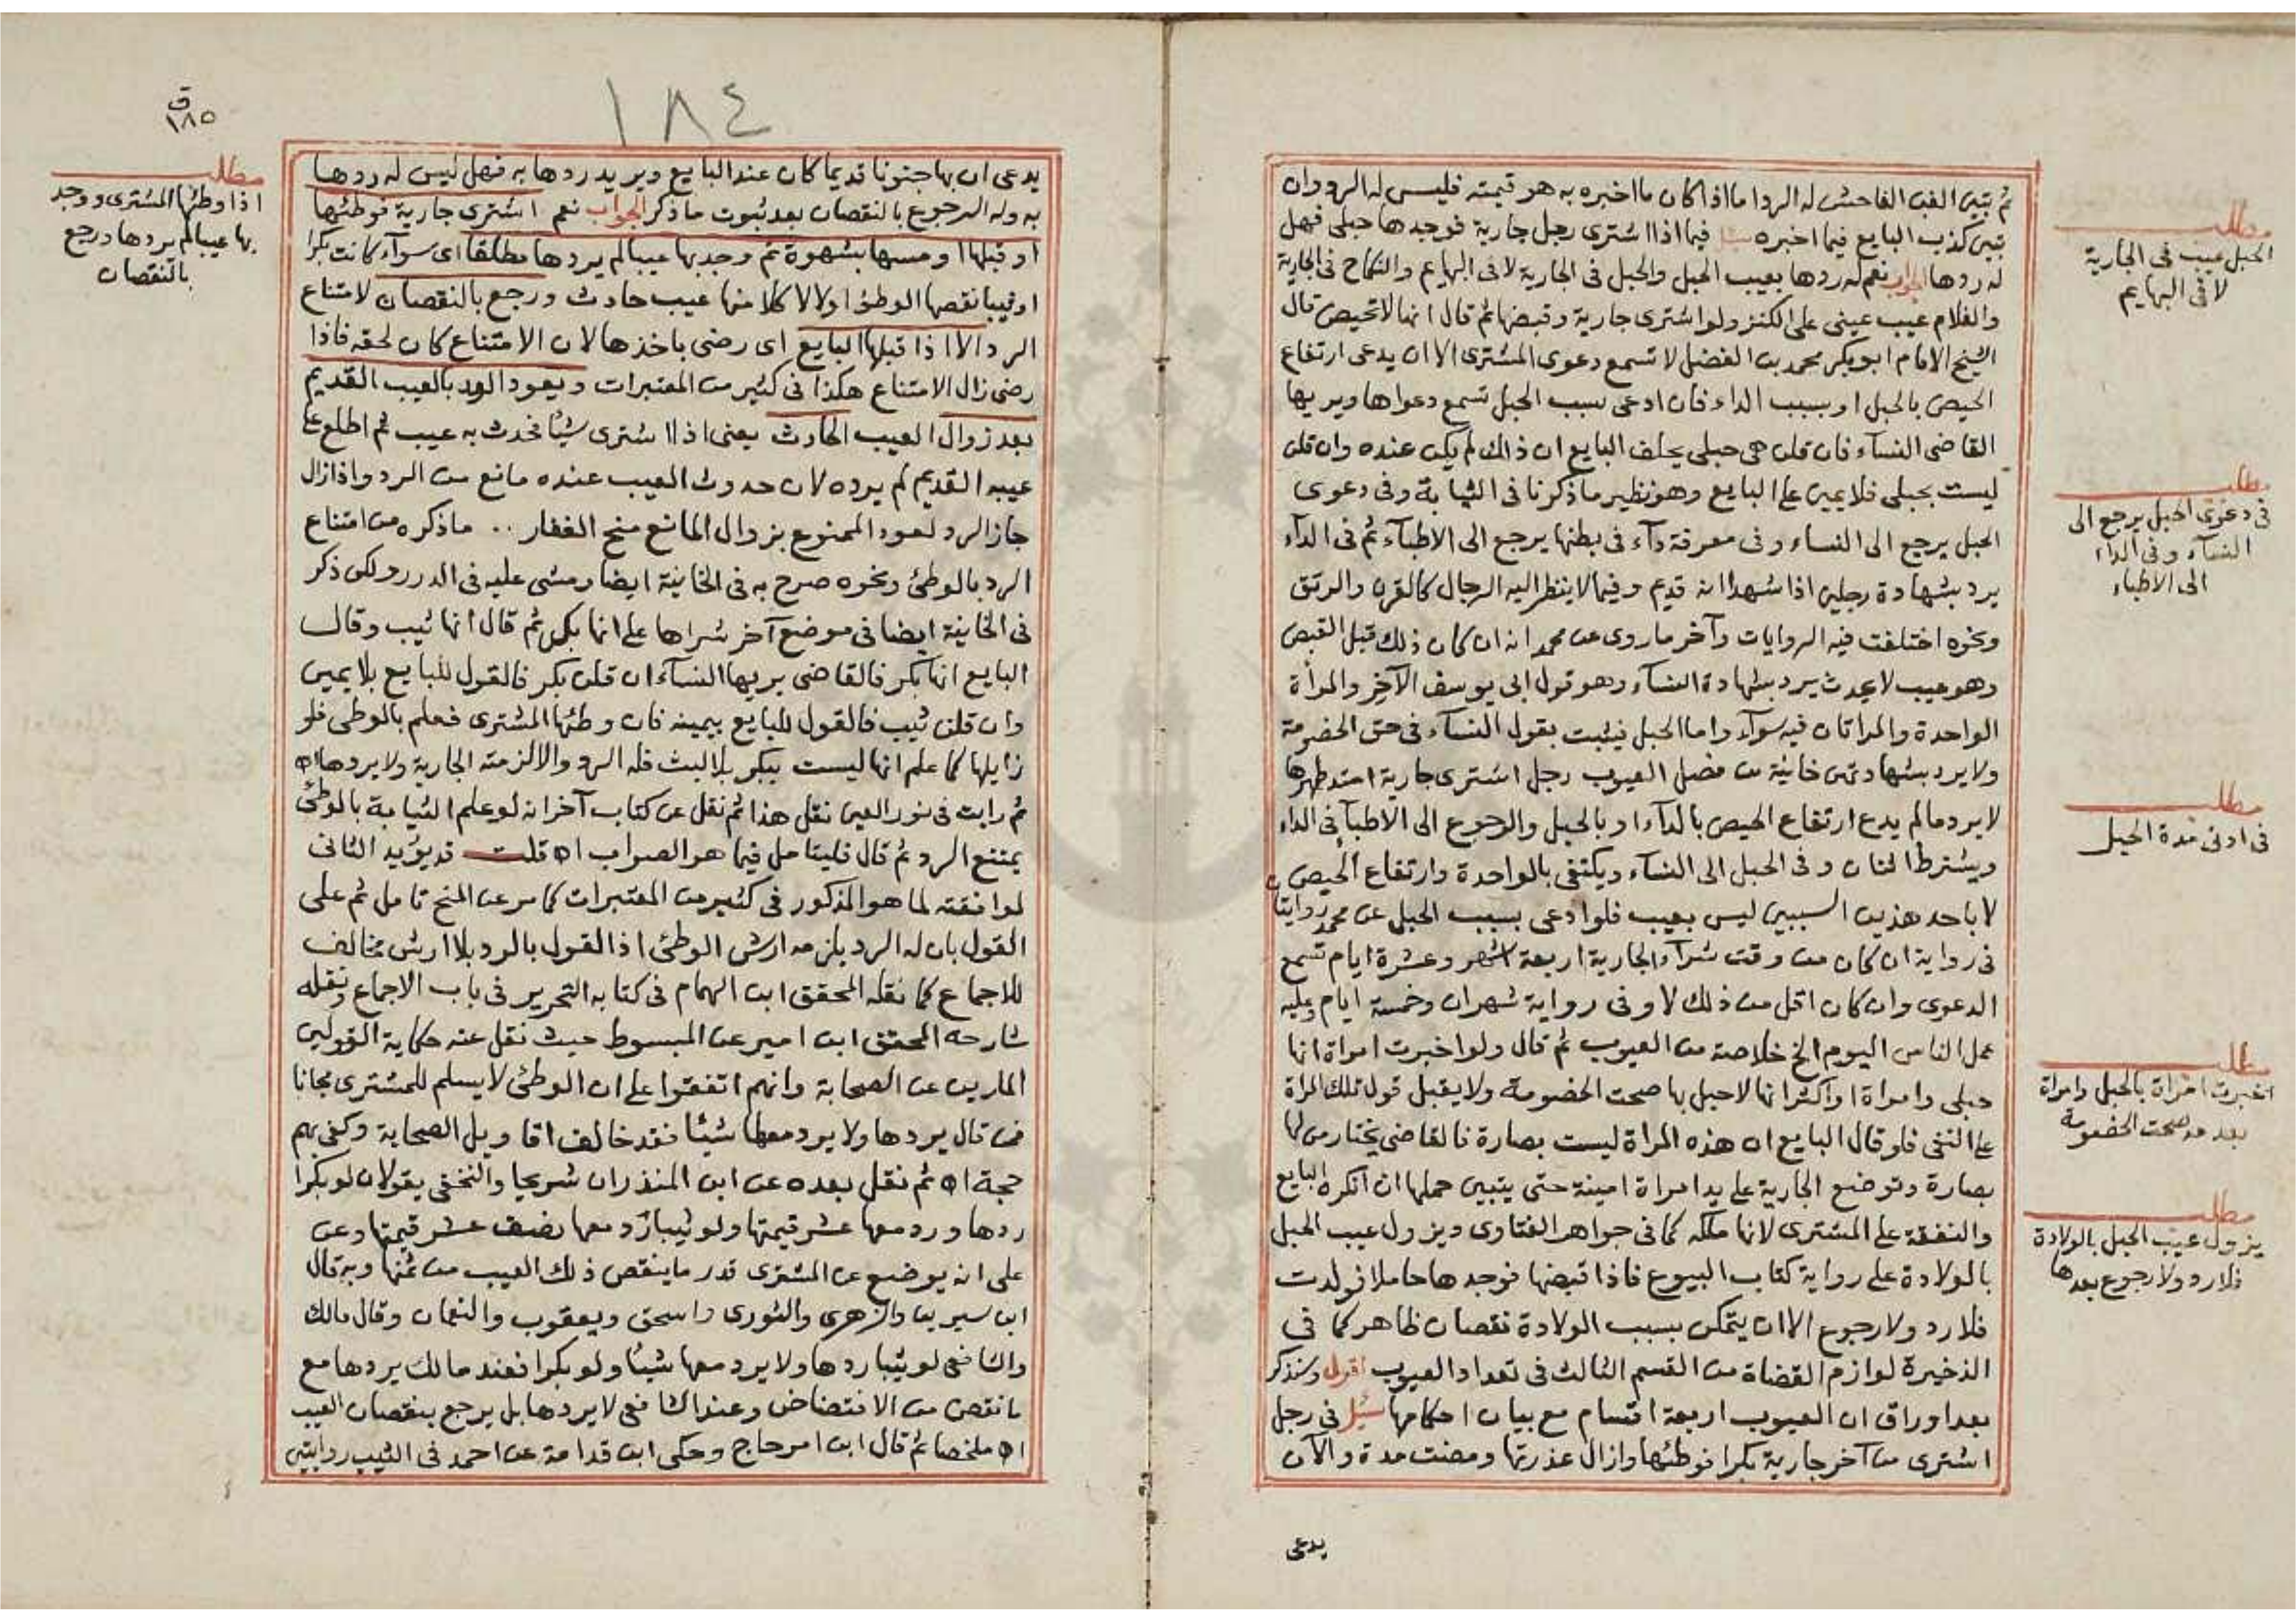 ثم تبين الغبن الفاحش له الرد اما اذا كان ما اخبره به هو قيمته فليس له الرد وان
تبين كذب البايع فيما اخبره سئل فيما اذا اشترى رجل جارية فوجدها حبلى فهل
له ردها الجواب نعم له ردها بعيب الحبل والحبل فى الجارية لا فى البهايم والنكاح فى الجارية
والغلام عيب عينى على الكنز ولو اشترى جارية وقبضها ثم قال انها لا تحيض قال
الشيخ الامام ابو بكر محمد بن الفضل لا تسمع دعوى المشترى الا ان يدعى ارتفاع
الحيض بالحبل او بسبب الداء فان ادعى بسبب الحبل تسمع دعواها ويريها
القاضى النساء فان قلن هى حبلى يحلف البايع ان ذلك لم يكن عنده وان قلن
ليست بحبلى فلا يمين على البايع وهو نظير ما ذكرنا فى الثيابة وفى دعوى
الحبل يرجع الى النساء وفى معرفة داء فى بطنها يرجع الى الاطباء ثم فى الداء
يرد بشهادة رجلين اذا شهدا انه قديم وفيما لا ينظر اليه الرجال كالقرن والرتق
ونحوه اختلفت فيه الروايات وآخر ما روى عن محمد انه ان كان ذلك قبل القبض
وهو عيب لا يحدث يرد بشهادة النساء وهو قول ابى يوسف الآخر والمرأة
الواحدة والمراتان فيه سواء واما الحبل فيثبت بقول النساء فى حق الخصومة
ولا يرد بشهادتهن خانية من فصل العيوب رجل اشترى جارية امتد طهرها
لا يرد ما لم يدع ارتفاع الحيض بالداء او بالحبل والرجوع الى الاطبا فى الداء
ويشترط اثنان وفى الحبل الى النساء ويكتفى بالواحدة وارتفاع الحيض
لا باحد هذين السببين ليس بعيب فلو ادعى بسبب الحبل عن محمد روايتان
فى رواية ان كان من وقت شراء الجارية اربعة اشهر وعشرة ايام تسمع
الدعوى وان كان اقل من ذلك لا وفى رواية شهران وخمسة ايام وعليه
عمل الناس اليوم الخ خلاصة من العيوب ثم قال ولو اخبرت امراة انها
حبلى وامراة او اكثر انها لا حبل بها صحت الخصومة ولا يقبل قول تلك المراة
على النفى فلو قال البايع ان هذه المراة ليست بصارة فالقاضى يختار من لها
بصارة وتوضع الجارية على يد امراة امينة حتى يتبين حملها ان انكره البايع
والنفقة على المشترى لانها ملكه كما فى جواهر الفتاوى ويزول عيب الحبل
بالولادة على رواية كتاب البيوع فاذا قبضها فوجدها حاملا فولدت
فلا رد ولا رجوع الا ان يتمكن بسبب الولادة نقصان ظاهر كما فى
الذخيرة لوازم القضاة من القسم الثالث فى تعداد العيوب اقول وسنذكر
بعد اوراق ان العيوب اربعة اقسام مع بيان احكامها سئل فى رجل
اشترى من آخر جارية بكرا فوطئها وازال عذرتها ومضت مدة والآن
يدعى
مطلب
الحبل عيب فى الجارية
لا فى البهايم
مطلب
فى دعوى الحبل يرجع الى
النساء وفى الداء
الى الاطباء
مطلب
فى ادنى مدة الحبل
مطلب
اخبرت امراة بالحبل وامراة
بعدمه صحت الخصومة
مطلب
يزول عيب الحبل بالولادة
فلا رد ولا رجوع بعدها
١٨٤
ق
١٨٥
يدعى ان بها جنونا قديما كان عند البايع ويريد ردها به فهل ليس له ردها
به وله الرجوع بالنقصان بعد ثبوت ما ذكر الجواب نعم اشترى جارية فوطئها
او قبلها او مسها بشهوة ثم وجد بها عيبا لم يردها مطلقا اى سواء كانت بكرا
او ثيبا نقصها الوطئ او لا لان كلا منها عيب حادث ورجع بالنقصان لامتناع
الرد الا اذا قبلها البايع اى رضى باخذها لان الامتناع كان لحقه فاذا
رضى زال الامتناع هكذا فى كثير من المعتبرات ويعود الرد بالعيب القديم
بعد زوال العيب الحادث يعنى اذا اشترى شيئا فحدث به عيب ثم اطلع على
عيبه القديم لم يرده لان حدوث العيب عنده مانع من الرد واذا زال
جاز الرد لعود الممنوع بزوال المانع منح الغفار .. ما ذكره من امتناع
الرد بالوطئ ونحوه صرح به فى الخانية ايضا ومشى عليه فى الدرر ولكن ذكر
فى الخانية ايضا فى موضع آخر شراها على انها بكر ثم قال انها ثيب وقال
البايع انها بكر فالقاضى يريها النساء ان قلن بكر فالقول للبايع بلا يمين
وان قلن ثيب فالقول للبايع بيمينه فان وطئها المشترى فعلم بالوطى فلو
زايلها كما علم انها ليست ببكر بلا لبث فله الرد والا لزمته الجارية ولا يردها اه
ثم رايت فى نور العين نقل هذا ثم نقل عن كتاب آخر انه لو علم الثيابة بالوطئ
يمتنع الرد ثم قال فليتامل فيما هو الصواب اه قلت قد يؤيد الثانى
لموافقته لما هو المذكور فى كثير من المعتبرات كما مر عن المنح تامل ثم على
القول بان له الرد يلزمه ارش الوطئ اذ القول بالرد بلا ارش مخالف
للاجماع كما نقله المحقق ابن الهمام فى كتابه التحرير فى باب الاجماع ونقله
شارحه المحقق ابن امير عن المبسوط حيث نقل عنه حكاية القولين
المارين عن الصحابة وانهم اتفقوا على ان الوطئ لا يسلم للمشترى مجانا
فمن قال يردها ولا يرد معها شيئا فقد خالف اقاويل الصحابة وكفى بهم
حجة اه ثم نقل بعده عن ابن المنذر ان شريحا والنخعى يقولان لو بكرا
ردها ورد معها عشر قيمتها ولو ثيبا رد معها نصف عشر قيمتها وعن
على انه يوضع عن المشترى قدر ما ينقص ذلك العيب من ثمنها وبه قال
ابن سيرين والزهرى والثورى واسحق ويعقوب والنعمان وقال مالك
والشافعى لو ثيبا ردها ولا يرد معها شيئا ولو بكرا فعند مالك يردها مع
ما نقص من الافتضاض وعند الشافعى لا يردها بل يرجع بنقصان العيب
اه ملخصا ثم قال ابن امير حاج وحكى ابن قدامة عن احمد فى الثيب روايتين
مطلب
اذا وطئها المشترى ووجد
بها عيبا لم يردها ورجع
بالنقصان